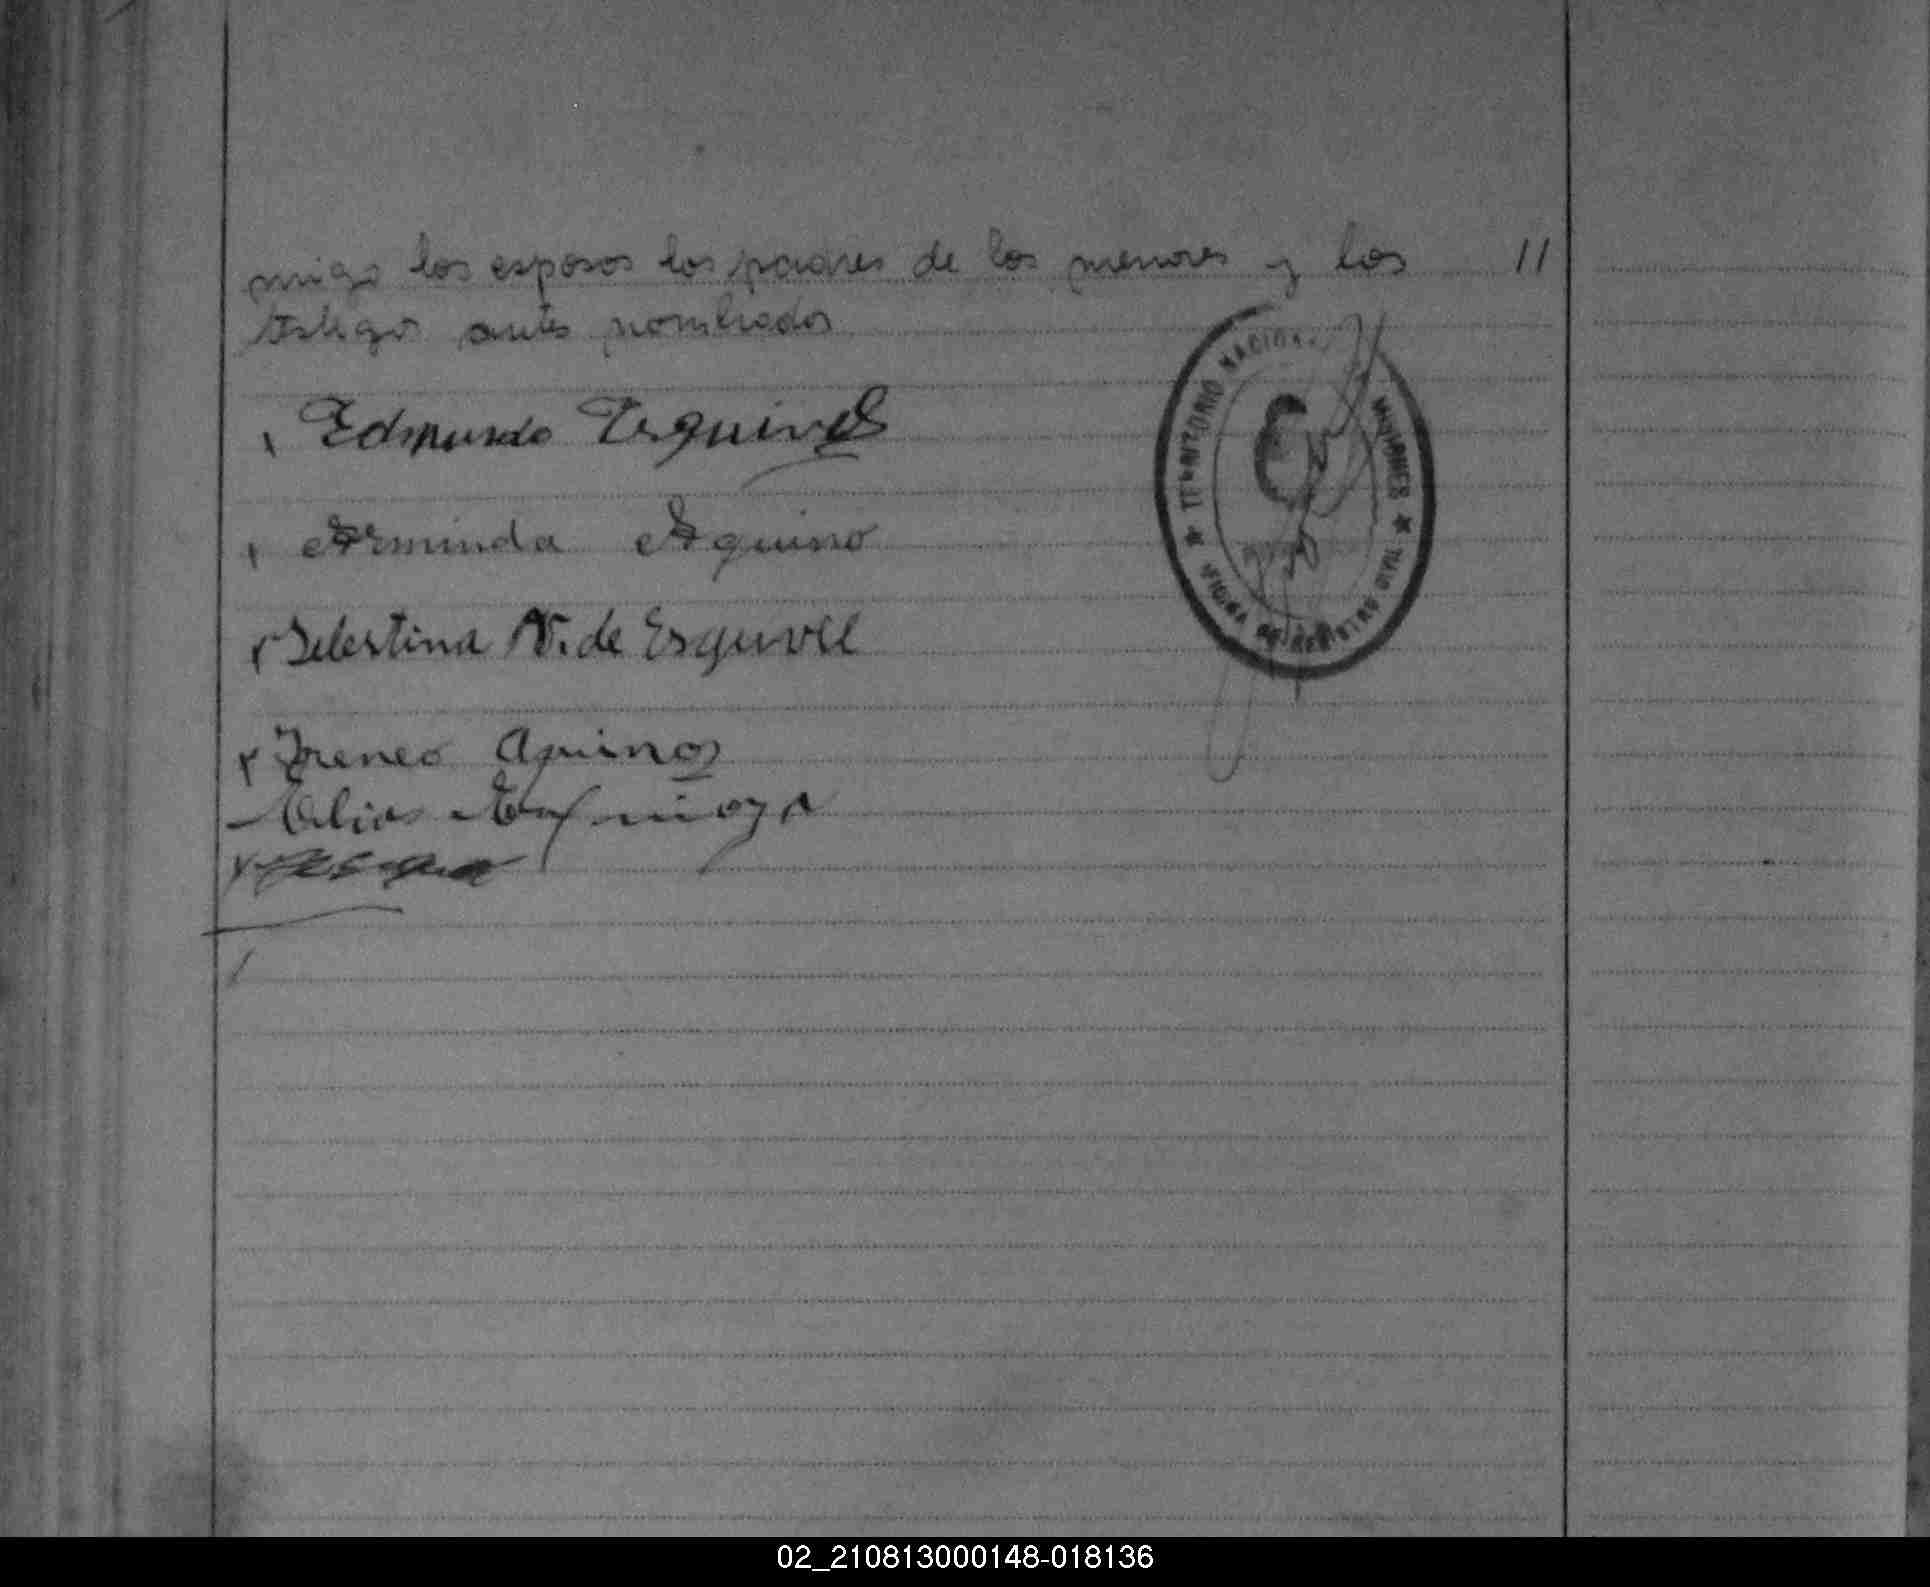 migo los esposos los padres de los menores y los 11
testigos antes nombrados
Edmundo Esquivel
Arminda Aquino
Selestina N. de Esquivel
Ireneo Aquino
Elias
TERRITORIO NACIONAL MISIONES
OFICINA DE REGISTRO CIVIL
02_210813000148-018136